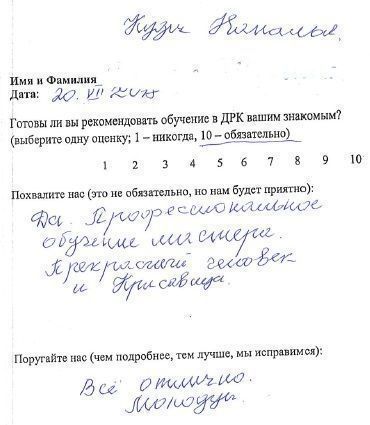 Имя и Фамилия
Дата: 20. VII 2015
Готовы ли вы рекомендовать обучение в ДРК вашим знакомым?
(выберите одну оценку; 1 – никогда, 10 – обязательно)
1 2 3 4 5 6 7 8 9 10
Похвалите нас (это не обязательно, но нам будет приятно):
Да. Профессиональное
обучение мастера.
Прекрасный человек
и Красавица.
Поругайте нас (чем подробнее, тем лучше, мы исправимся):
Всё отлично.
Молодцы.